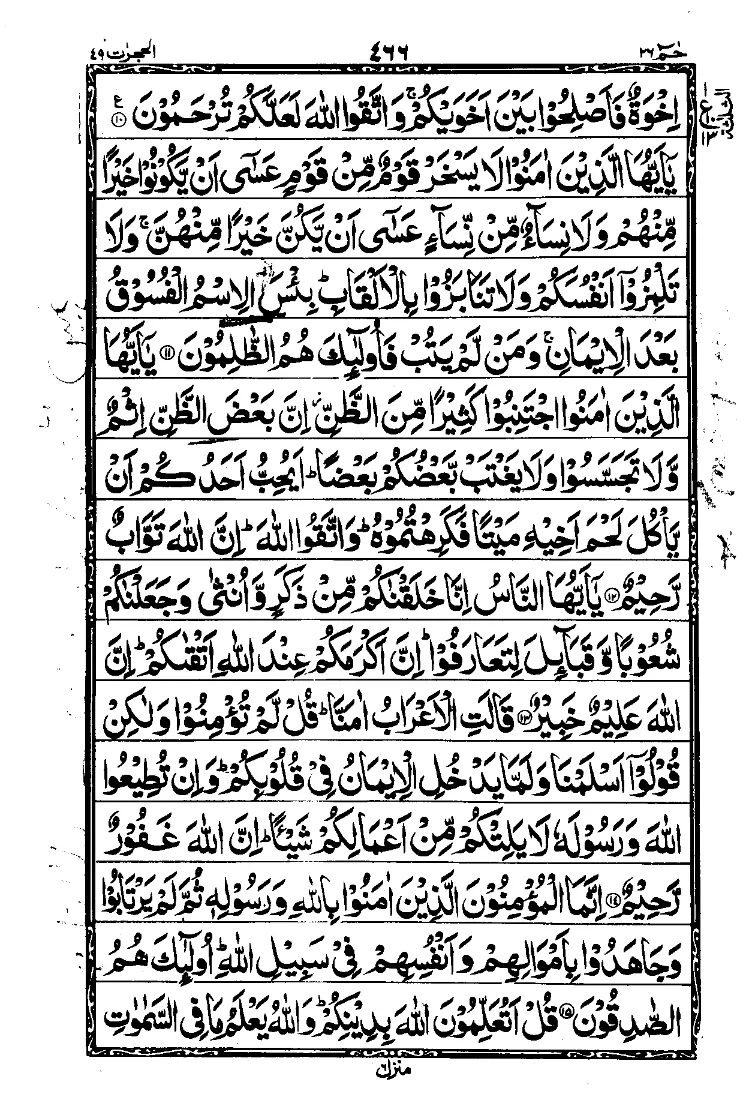 حٰمٓ ٢٦ ٤٦٦ الحجرٰت ٤٩
اِخْوَةٌ فَاَصْلِحُوْا بَيْنَ اَخَوَيْكُمْ ۚ وَاتَّقُوا اللّٰهَ لَعَلَّكُمْ تُرْحَمُوْنَ ۧ ⑩
يٰۤاَيُّهَا الَّذِيْنَ اٰمَنُوْا لَا يَسْخَرْ قَوْمٌ مِّنْ قَوْمٍ عَسٰۤى اَنْ يَّكُوْنُوْا خَيْرًا
مِّنْهُمْ وَلَا نِسَآءٌ مِّنْ نِّسَآءٍ عَسٰۤى اَنْ يَّكُنَّ خَيْرًا مِّنْهُنَّ ۚ وَلَا
تَلْمِزُوْۤا اَنْفُسَكُمْ وَلَا تَنَابَزُوْا بِالْاَلْقَابِ ؕ بِئْسَ الِاسْمُ الْفُسُوْقُ
بَعْدَ الْاِيْمَانِ ۚ وَمَنْ لَّمْ يَتُبْ فَاُولٰٓئِكَ هُمُ الظّٰلِمُوْنَ ⑪ يٰۤاَيُّهَا
الَّذِيْنَ اٰمَنُوا اجْتَنِبُوْا كَثِيْرًا مِّنَ الظَّنِّ ۫ اِنَّ بَعْضَ الظَّنِّ اِثْمٌ
وَّلَا تَجَسَّسُوْا وَلَا يَغْتَبْ بَّعْضُكُمْ بَعْضًا ؕ اَيُحِبُّ اَحَدُكُمْ اَنْ
يَّاْكُلَ لَحْمَ اَخِيْهِ مَيْتًا فَكَرِهْتُمُوْهُ ؕ وَاتَّقُوا اللّٰهَ ؕ اِنَّ اللّٰهَ تَوَّابٌ
رَّحِيْمٌ ⑫ يٰۤاَيُّهَا النَّاسُ اِنَّا خَلَقْنٰكُمْ مِّنْ ذَكَرٍ وَّاُنْثٰى وَجَعَلْنٰكُمْ
شُعُوْبًا وَّقَبَآئِلَ لِتَعَارَفُوْا ؕ اِنَّ اَكْرَمَكُمْ عِنْدَ اللّٰهِ اَتْقٰىكُمْ ؕ اِنَّ
اللّٰهَ عَلِيْمٌ خَبِيْرٌ ⑬ قَالَتِ الْاَعْرَابُ اٰمَنَّا ؕ قُلْ لَّمْ تُؤْمِنُوْا وَلٰكِنْ
قُوْلُوْۤا اَسْلَمْنَا وَلَمَّا يَدْخُلِ الْاِيْمَانُ فِيْ قُلُوْبِكُمْ ؕ وَاِنْ تُطِيْعُوا
اللّٰهَ وَرَسُوْلَهٗ لَا يَلِتْكُمْ مِّنْ اَعْمَالِكُمْ شَيْـًٔا ؕ اِنَّ اللّٰهَ غَفُوْرٌ
رَّحِيْمٌ ⑭ اِنَّمَا الْمُؤْمِنُوْنَ الَّذِيْنَ اٰمَنُوْا بِاللّٰهِ وَرَسُوْلِهٖ ثُمَّ لَمْ يَرْتَابُوْا
وَجَاهَدُوْا بِاَمْوَالِهِمْ وَاَنْفُسِهِمْ فِيْ سَبِيْلِ اللّٰهِ ؕ اُولٰٓئِكَ هُمُ
الصّٰدِقُوْنَ ⑮ قُلْ اَتُعَلِّمُوْنَ اللّٰهَ بِدِيْنِكُمْ ؕ وَاللّٰهُ يَعْلَمُ مَا فِي السَّمٰوٰتِ
منزل ٦